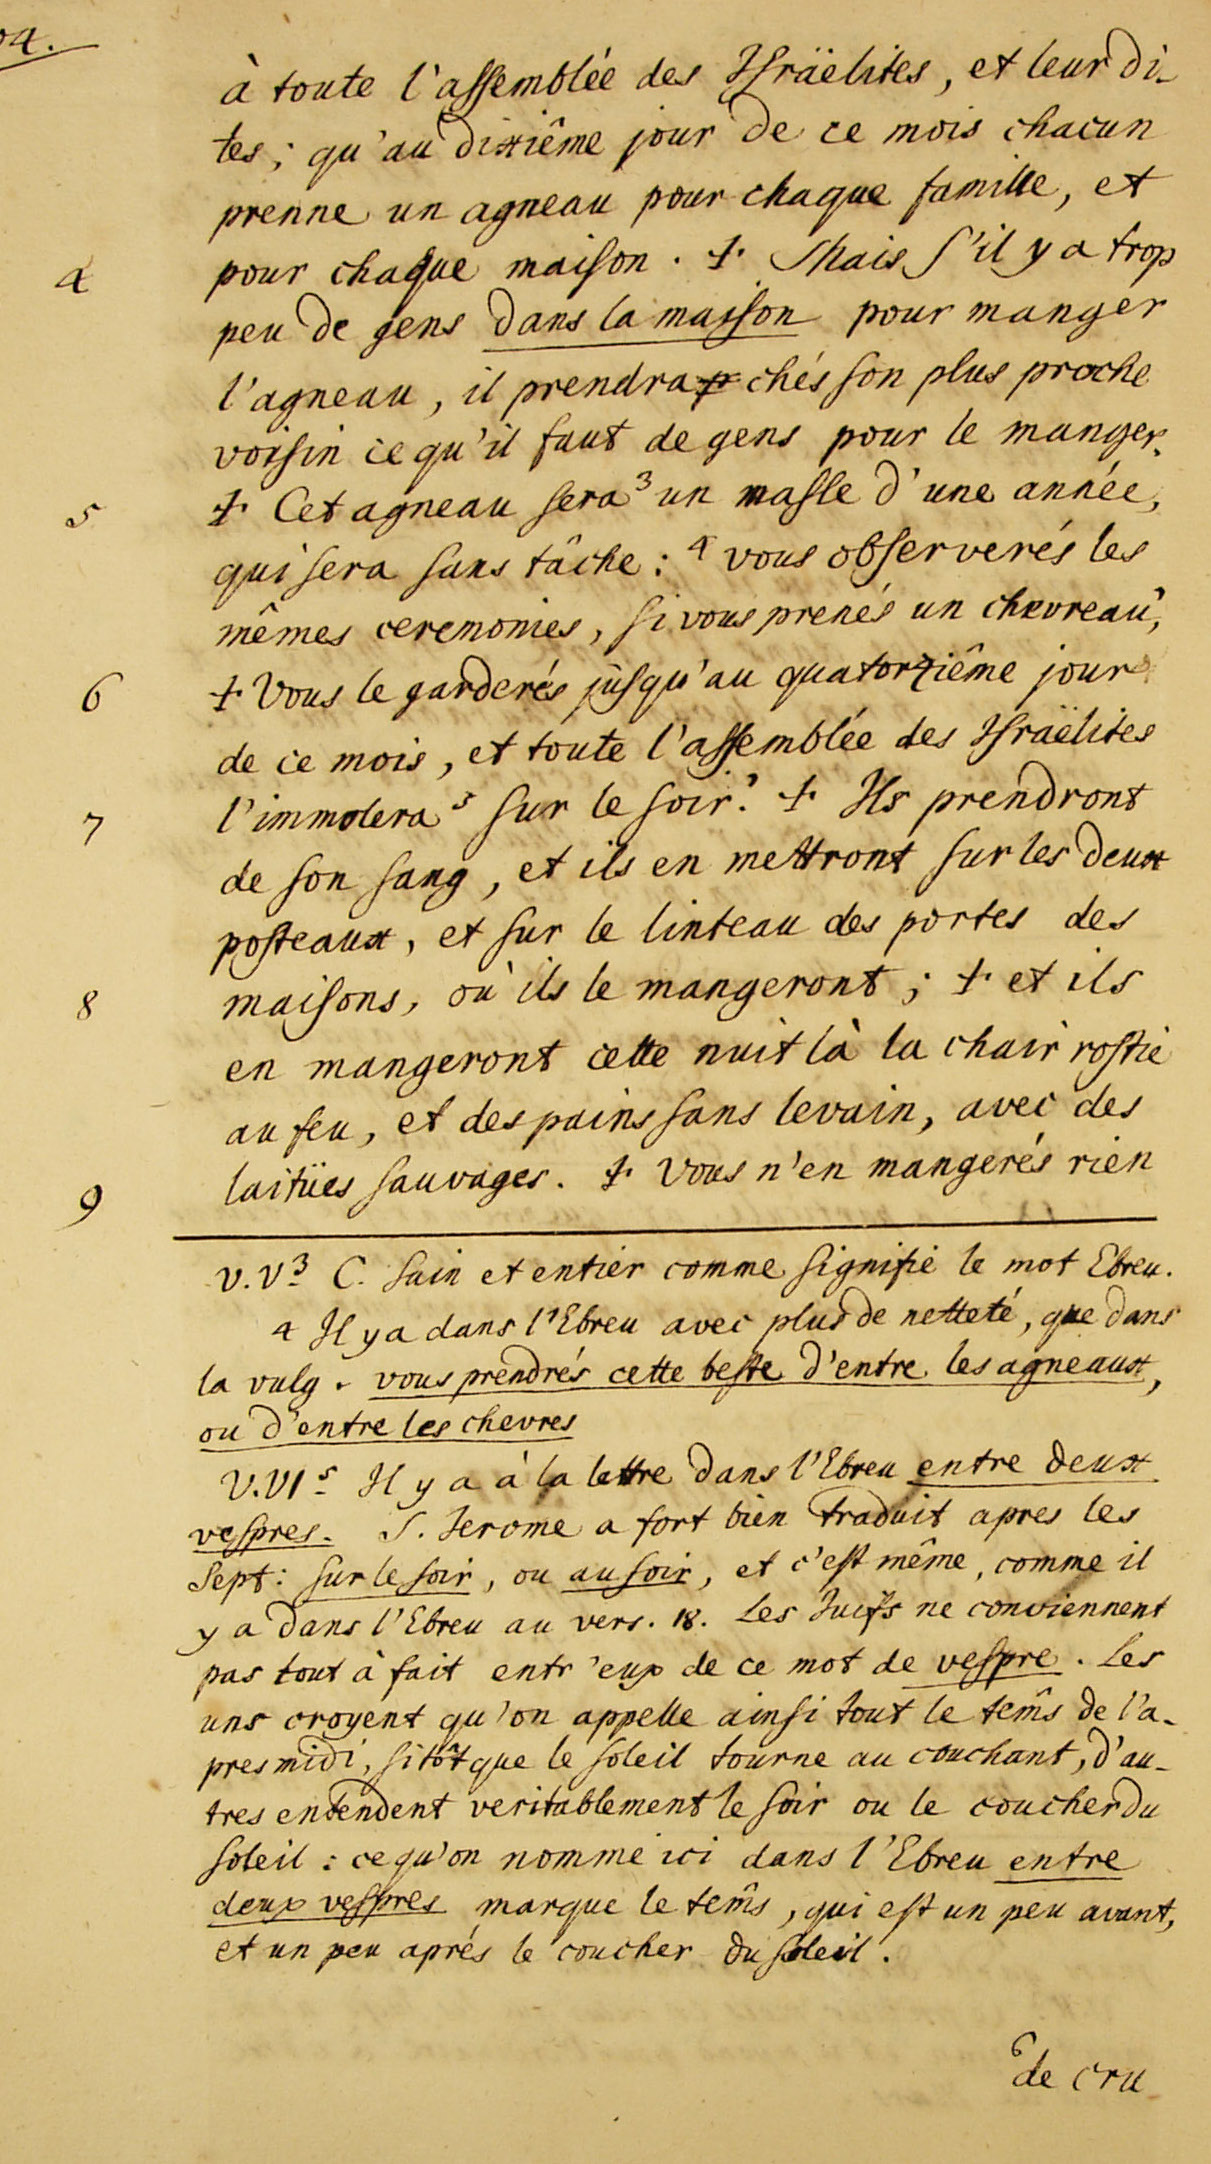 04.
à toute l'assemblée des Israëlites, et leur di-
tes; qu'au dixiême jour de ce mois chacun
prenne un agneau pour chaque famille, et
4 pour chaque maison. ☩ Mais s'il y a trop
peu de gens dans la maison pour manger
l'agneau, il prendra chés son plus proche
voisin ce qu'il faut de gens pour le manger.
5 ☩ Cet agneau sera ³ un masle d'une année,
qui sera sans tâche: ⁴ vous observerés les
mêmes ceremonies, si vous prenés un chevreau,
6 ☩ Vous le garderés jusqu'au quatorziême jour
de ce mois, et toute l'assemblée des Israëlites
7 l'immolera ⁵ sur le soir. ☩ Ils prendront
de son sang, et ils en mettront sur les deux
posteaux, et sur le linteau des portes des
8 maisons, où ils le mangeront; ☩ et ils
en mangeront cette nuit là la chair rostie
au feu, et des pains sans levain, avec des
9 laitües sauvages. ☩ Vous n'en mangerés rien
V.V³ C. sain et entier comme signifie le mot Ebreu.
4 Il y a dans l'Ebreu avec plus de netteté, que dans
la vulg. vous prendrés cette beste d'entre les agneaux,
ou d'entre les chevres
V.VI⁵ Il y a à la lettre dans l'Ebreu entre deux
vespres. S. Jerome a fort bien traduit apres les
Sept: sur le soir, ou au soir, et c'est même, comme il
y a dans l'Ebreu au vers. 18. Les Juifs ne conviennent
pas tout à fait entr'eux de ce mot de vespre. Les
uns croyent qu'on appelle ainsi tout le tem̂s de l'a-
pres midi, sitôt que le soleil tourne au couchant, d'au-
tres entendent veritablement le soir ou le coucher du
soleil: ce qu'on nomme ici dans l'Ebreu entre
deux vespres marque le tem̂s, qui est un peu avant,
et un peu aprés le coucher du soleil.
⁶ de cru